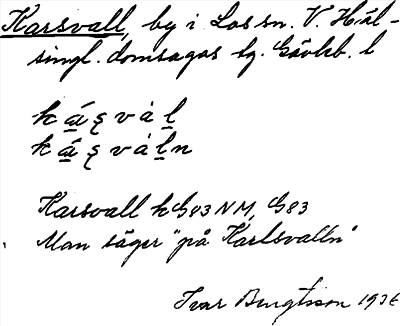 Karsvall, by i Los sn. V. Häl-
singl. domsagas tg. Gävleb. l
k å̲ ʂ v à l̲
k å̲ ʂ v á l̲ n
Karsvall k G83 NM, G83
Man säger "på Karlsvalln"
Ivar Bengtsson 1936